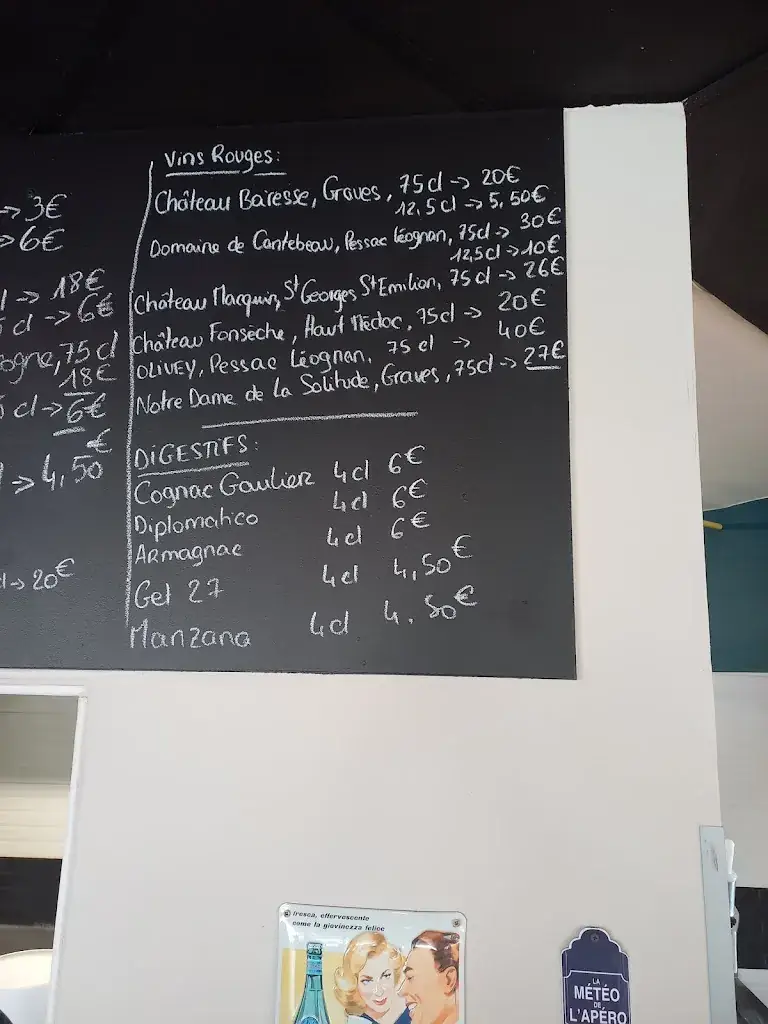 → 3€
→ 6€
→ 18€
cl → 6€
ogne, 75 cl
18€
cl → 6€
€
→ 4,50
→ 20€
Vins Rouges:
Château Bairesse, Graves, 75cl → 20€
12,5cl → 5,50€
Domaine de Cantebeau, Pessac Léognan, 75cl → 30€
12,5cl → 10€
Château Macquin, St Georges St Emilion, 75cl → 26€
Château Fonsèche, Haut Médoc, 75cl → 20€
OLIVEY, Pessac Léognan, 75 cl → 40€
Notre Dame de La Solitude, Graves, 75cl → 27€
DIGESTIFS:
Cognac Gaulier 4cl 6€
Diplomatico 4cl 6€
Armagnac 4cl 6€
Get 27 4cl 4,50€
Manzana 4cl 4.50€
fresca, effervescente
come la giovinezza felice
LA
MÉTÉO
DE
L'APÉRO